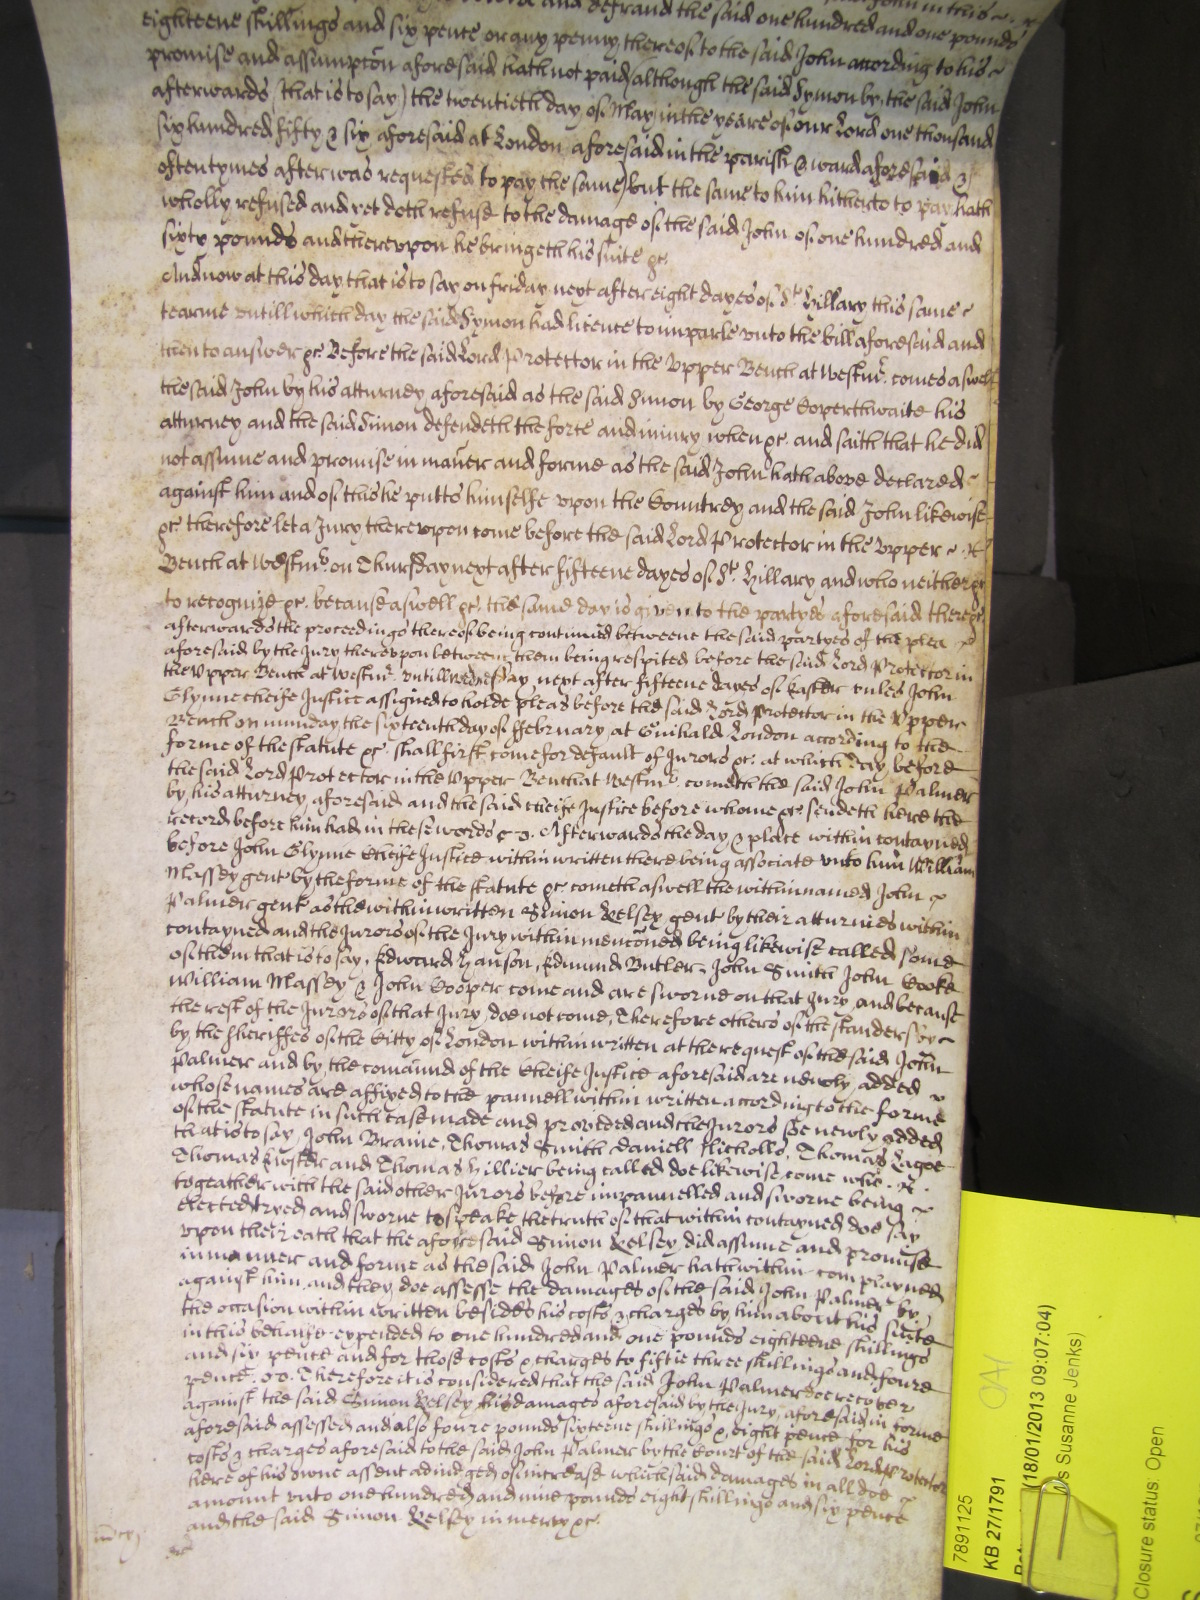 and defraud the said
eighteene shillings and six pence or any penny thereof to the said John according to his
promise and assumpcõn aforesaid hath not paid (although the said Symon by the said John
afterwards (that is to say) the twentieth day of May in the yeare of our Lord one thousand
six hundred fifty & six aforesaid at London aforesaid in the parish & ward aforesaid &
oftentymes after was requested to pay the same) but the same to him hitherto to pay hath
wholly refused and yet doth refuse to the damage of the said John of one hundred and
sixty pounds and therevpon he bringeth his suite &c.
And now at this day that is to say on friday next after eight dayes of St. Hillary this same
tearme vntill which day the said Symon had licence to imparle vnto the bill aforesaid and
then to answer &c. Before the said Lord Protector in the Vpper Bench at Westmr. comes aswell
the said John by his atturney aforesaid as the said Simon by George Coperthwaite his
atturney and the said Simon defendeth the force and iniury when &c. and saith that he did
not assume and promise in mañer and forme as the said John hath above declared
against him and of this he putts himselfe vpon the Countrey and the said John likewise
&c. therefore let a Jury therevpon come before the said Lord Protector in the vpper
Bench at Westmr. on Thursday next after fifteene dayes of St. Hillary and who neither &c
to recognize &c. because aswell &c. the same day is given to the partyes aforesaid there &c.
afterwards the proceedings thereof being continued betweene the said partyes of the plea
aforesaid by the Jury therevpon betweene them being respited before the said Lord Protector in
the Vpper Bench at Westmr. vntill wednesday next after fifteene dayes of Easter vnles John
Glynne cheife Justice assigned to holde pleas before the said Lord Protector in the Vpper
Bench on munday the sixteenth day of ffebruary at Guihald London according to the
forme of the statute &c. shall first come for default of Jurors &c. at which day before
the said Lord Protector in the Vpper Bench at Westmr. cometh the said John Palmer
by his atturney aforesaid and the said cheife Justice before whome &c. sendeth here the
record before him had in these words Afterwards the day & place within contayned
before John Glynne Cheife Justice within written there being associate vnto him William
Massey gent by the forme of the statute &c. cometh aswell the within named John
Palmer gent as the within written Simon Kelsey gent by their atturnies within
contayned and the Jurors of the Jury within mencõned being likewise called some
of them that is to say, Edward Hanson, Edmund Butler, John Smith John Cooke
William Massey & John Cooper come and are sworne on that Jury and because
the rest of the Jurors of that Jury doe not come, Therefore others of the standers by
by the sheriffes of the Citty of London within written at the request of the said John
Palmer and by the comãund of the Cheife Justice aforesaid are newly added
whose names are affixed to the pannell within written according to the forme
of the statute in such case made and provided and the Jurors soe newly added
that is to say, John Braine, Thomas Smith Daniell Nicholls, Thomas
Thomas and Thomas Hillier being called doe likewise come who
togeather with the said other Jurors before impannelled and sworne being
elected tryed and sworne to speake the truth of that within contayned doe say
vpon their oath that the aforesaid Simon Kelsey did assume and promise
in manner and forme as the said John Palmer hath within complayned
against him and they doe assesse the damages of the said John Palmer by
the occasion within written besides his costs & charges by him about his suite
in this behalfe expended to one hundred and one pounds eighteene shillings
and six pence and for those costs & charges to fiftie three shillings and foure
pence. Therefore it is considered that the said John Palmer doe recover
against the said Simon Kelsey his damages aforesaid by the Jury aforesaid in forme
aforesaid assessed and also foure pounds sixteene shillings & eight pence for his
costs & charges aforesaid to the said John Palmer by the Court of the said Lord Protector
here of his owne assent adiudged of increase which said damages in all doe
amount vnto one hundred and nine pounds eight shillings and six pence
and the said Simon Kelsey in mercy &c.
7891125
KB 27/1791
(18/01/2013 09:07:04)
s Susanne Jenks)
Closure status: Open